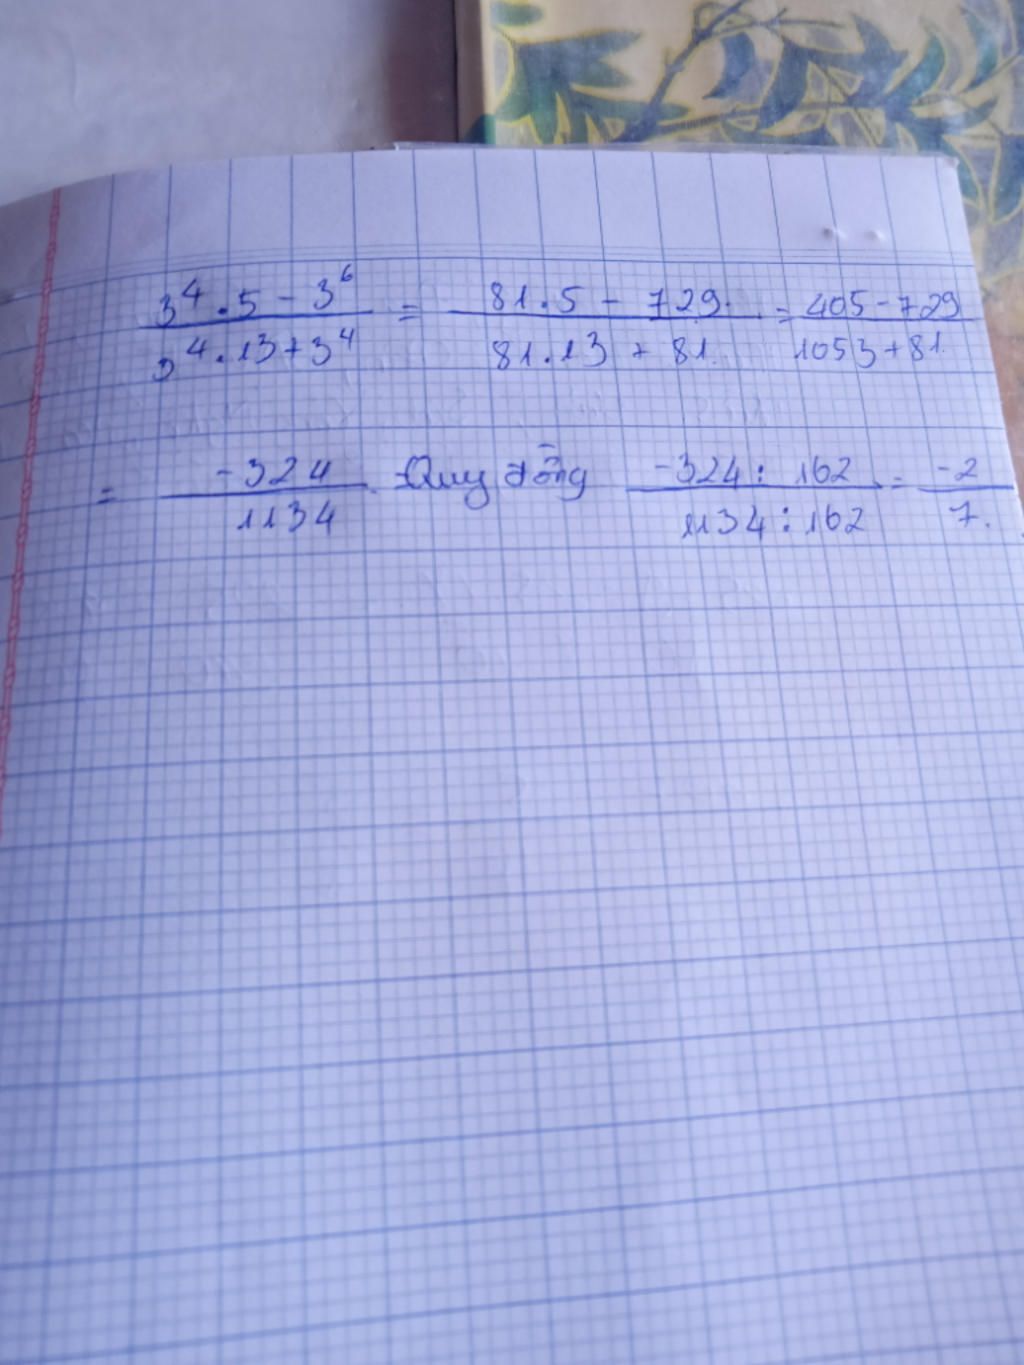 3⁴.5 - 3⁶ / 3⁴.13+3⁴ = 81.5 - 729 / 81.13 + 81 = 405-729 / 1053+81
= -324 / 1134 Quy đồng -324: 162 / 1134:162 = -2 / 7.